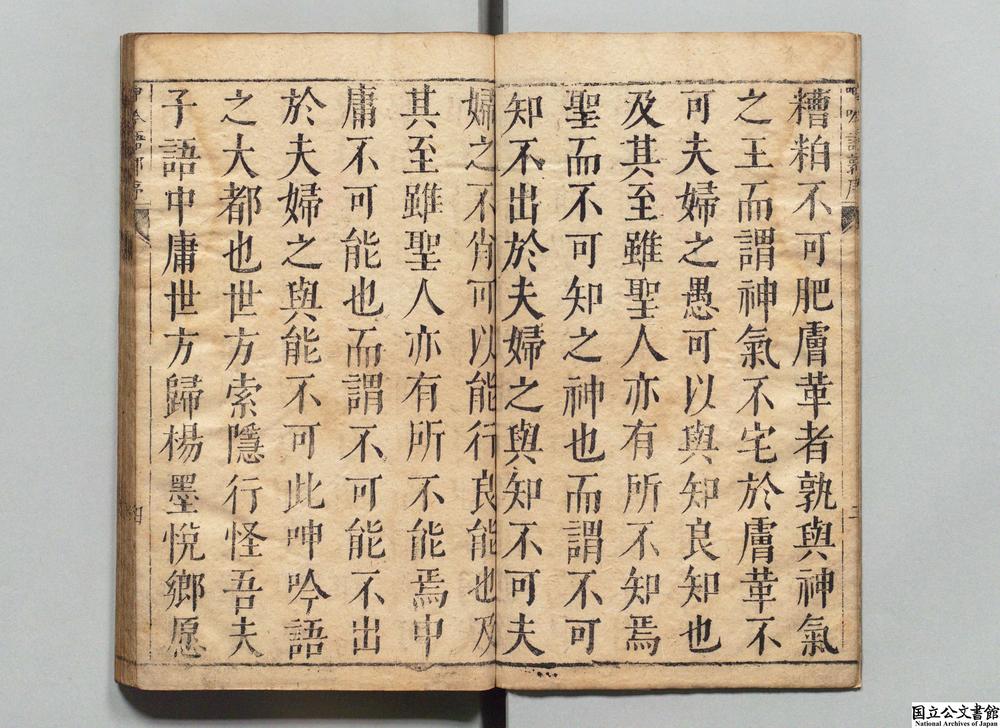 糟粕不可肥膚革者孰與神氣
之王而謂神氣不宅於膚革不
可夫婦之愚可以與知良知也
及其至雖聖人亦有所不知焉
聖而不可知之神也而謂不可
知不出於夫婦之與知不可夫
婦之不肖可以能行良能也及
其至雖聖人亦有所不能焉中
庸不可能也而謂不可能不出
於夫婦之與能不可此呻吟語
之大都也世方索隱行怪吾夫
子語中庸世方歸楊墨悅鄉愿
国立公文書館
National Archives of Japan